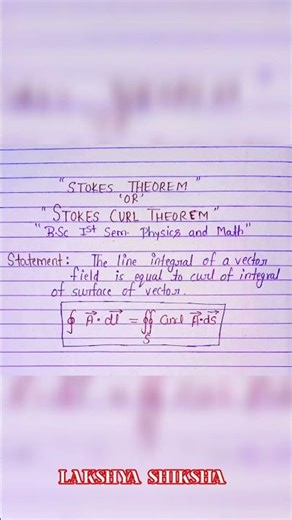 "STOKES THEOREM"
'OR'
"STOKES CURL THEOREM"
"B.Sc Ist Sem. Physics and Math"
Statement: The line integral of a vector
field is equal to curl of integral
of surface of vector.
∮ A⃗·dl⃗ = ∯ Curl A⃗·ds⃗
S
LAKSHYA SHIKSHA